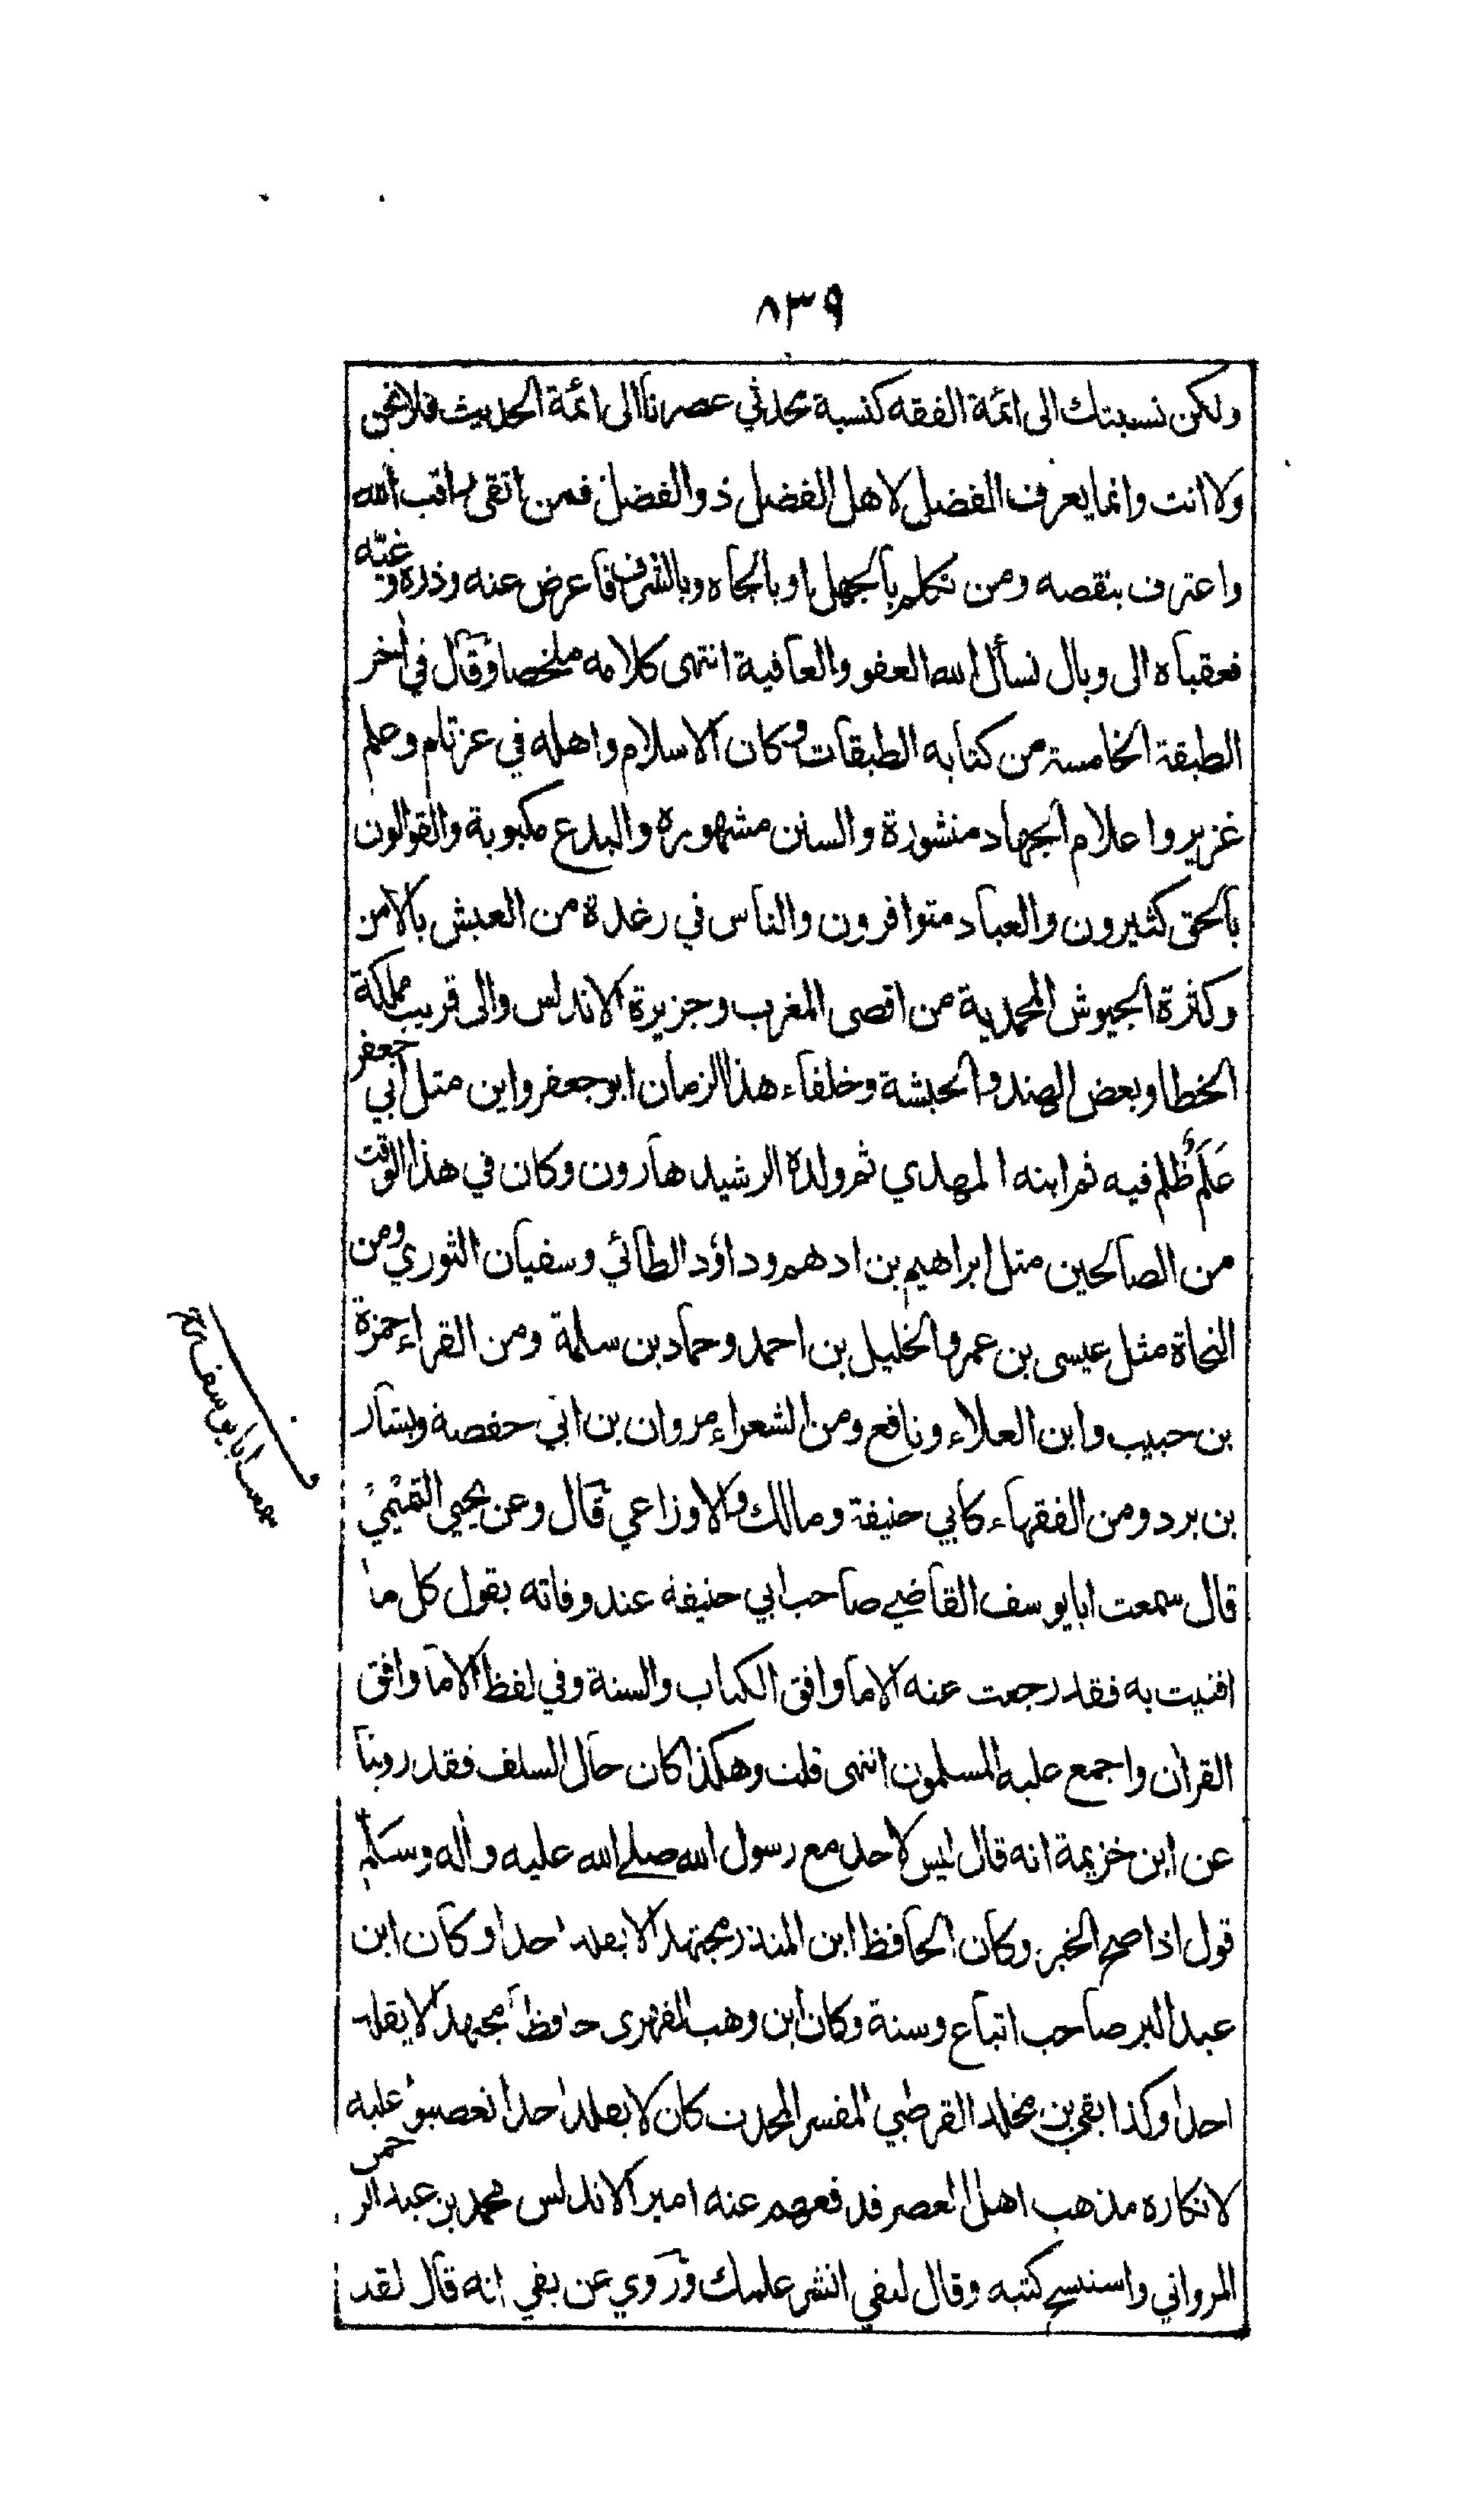 ٨٣٩
ولكن نسبتك الى ائمة الفقه كنسبة محدثي عصرنا الى ائمة الحديث فلا نحن
ولا انت وانما يعرف الفضل لاهل الفضل ذو الفضل فمن اتقى راقب الله
واعترف بنقصه ومن تكلم بالجهل او بالجاه وبالشرف فاعرض عنه وذره وغيه
فعقباه الى وبال نسأل الله العفو والعافية انتهى كلامه ملخصا وقال في اخر
الطبقة الخامسة من كتابه الطبقات وكان الاسلام واهله في عز تام وعلم
غزير واعلام الجهاد منشورة والسنن مشهوره والبدع مكبوبة والقوالون
بالحق كثيرون والعباد متوافرون والناس في رغدة من العيش بالامن
وكثرة الجيوش المحمدية من اقصى المغرب وجزيرة الاندلس والى قريب مملكة
الخطا وبعض الهند والحبشة وخلفاء هذا الزمان ابو جعفر واين مثل ابي جعفر
عَلَم وظُلم فيه ثم ابنه المهدي ثم ولده الرشيد هارون وكان في هذا الوقت
من الصالحين مثل ابراهيم بن ادهم وداؤد الطائي وسفيان الثوري ومن
النحاة مثل عيسى بن عمر والخليل بن احمد وحماد بن سلمة ومن القراء حمزة
بن حبيب وابن العلاء ونافع ومن الشعراء مروان بن ابي حفصة وبشار
بن برد ومن الفقهاء كابي حنيفة ومالك والاوزاعي قال وعن يحيي التميمي
قال سمعت ابا يوسف القاضي صاحب ابي حنيفة عند وفاته يقول كل ما
افتيت به فقد رجعت عنه الا ما وافق الكتاب والسنة وفي لفظ الا ما وافق
القران واجمع عليه المسلمون انتهى قلت وهكذا كان حال السلف فقد روينا
عن ابن خزيمة انه قال ليس لاحد مع رسول الله صلے الله عليه واله وسلم
قول اذا صح الخبر وكان الحافظ ابن المنذر مجتهدا لا يقلد احدا وكان ابن
عبد البر صاحب اتباع وسنة وكان ابن وهب الفهرى حافظا مجتهدا لا يقلد
احدا وكذا بقي بن مخلد القرطبي المفسر المحدث كان لا يقلد احدا تعصبوا عليه
لانكاره مذهب اهل العصر فدفعهم عنه امير الاندلس محمد بن عبد الرحمن
المرواني واستنسخ كتبه وقال لبقي انشر علمك وروي عن بقي انه قال لقد
ابا يوسف